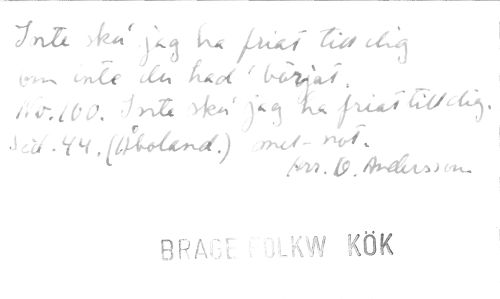 Inte ska' jag ha friat till dig
om inte du had' börjat.
No. 100. Inte ska' jag ha friat till dig.
Sid. 44. (Åboland.) mel-not.
Arr. O. Andersson.
BRAGE FOLKW KÖK